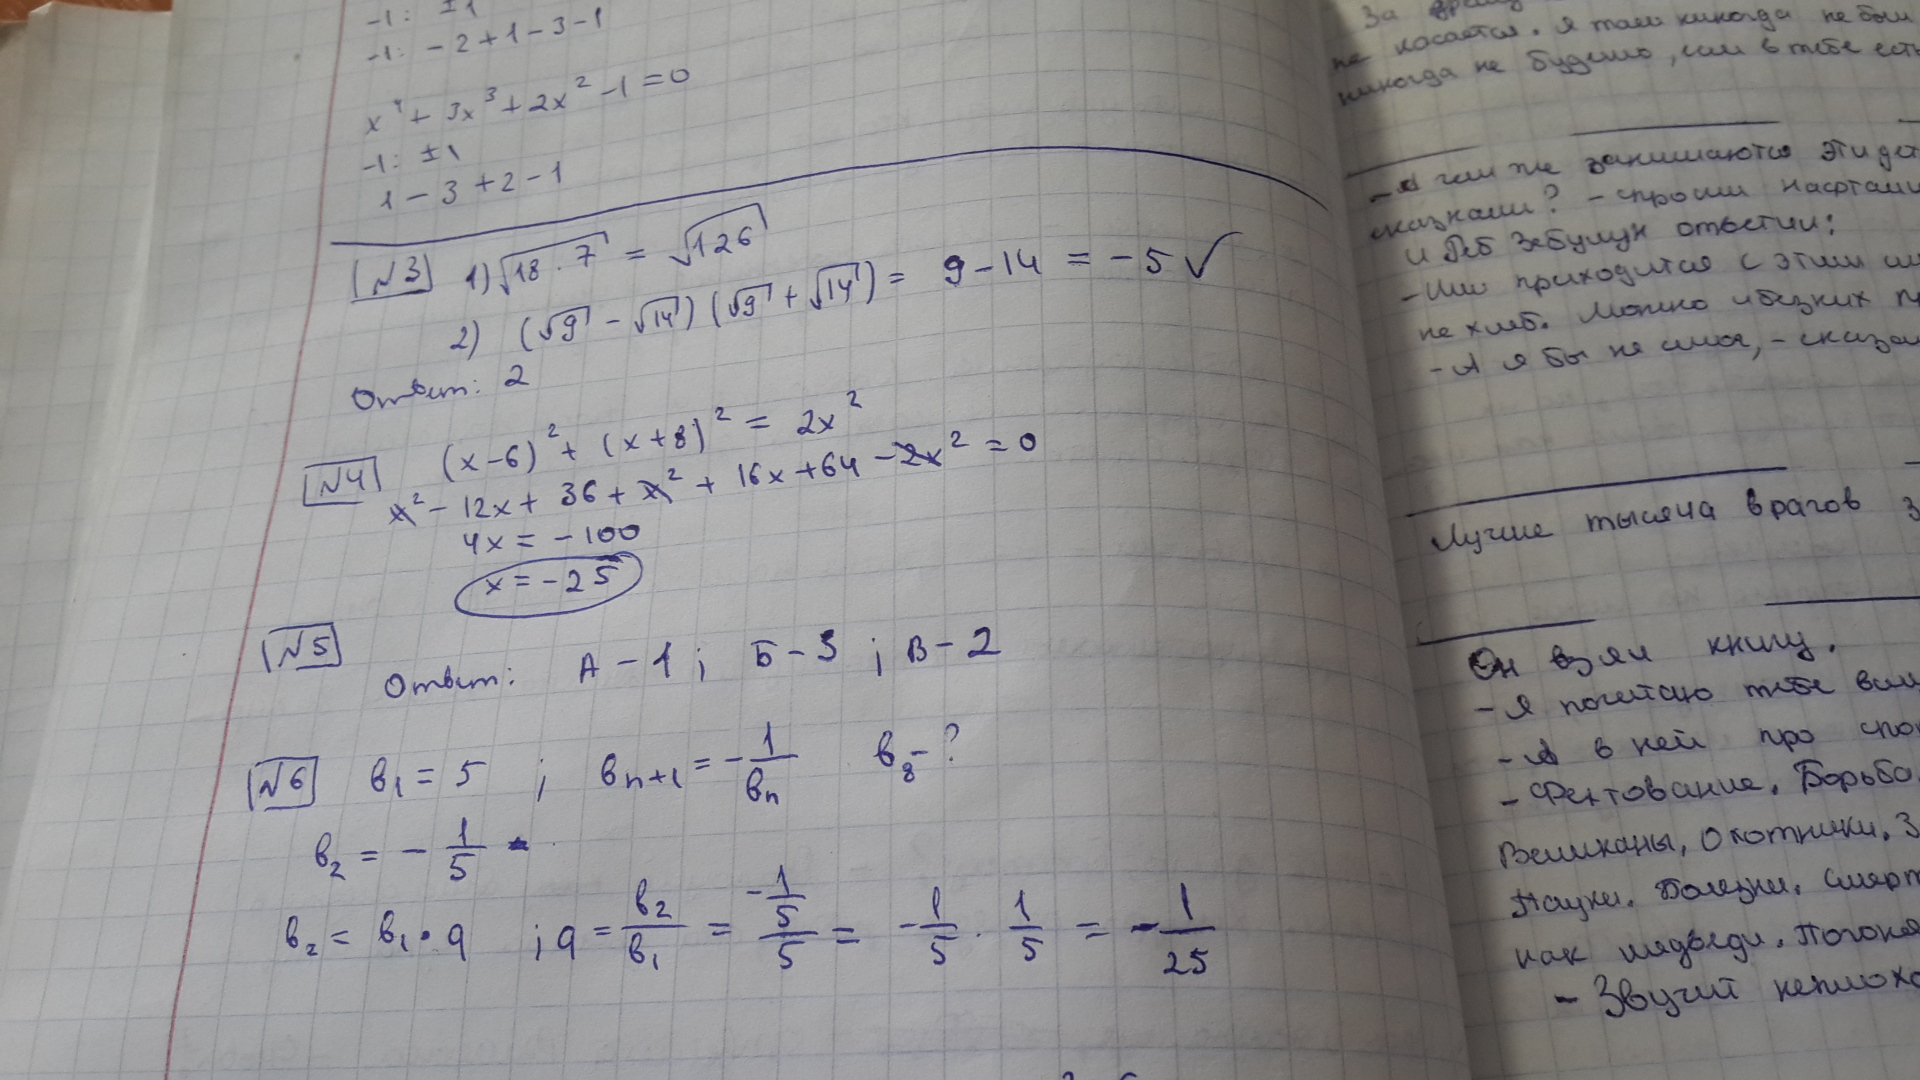 -1: ±1
-1: -2+1-3-1
x⁴+3x³+2x²-1=0
-1: ±1
1-3+2-1
№3 1) √18·7 = √126
2) (√9 - √14)(√9 + √14) = 9-14 = -5 ✓
Ответ: 2
№4 (x-6)² + (x+8)² = 2x²
x² - 12x + 36 + x² + 16x + 64 - 2x² = 0
4x = -100
x = -25
№5
Ответ: А - 1; Б - 3; В - 2
№6 в₁ = 5 ; вₙ₊₁ = -1/вₙ в₈ - ?
в₂ = -1/5
в₂ = в₁·q ; q = в₂/в₁ = (-1/5)/5 = -1/5 · 1/5 = -1/25
За
не касается. Я там никогда не был
никогда не будешь, если в тебе есть
- А чем же занимаются эти
сказками? - спросил Нафтали
И Реб Зебулун ответил:
- Им приходится с этим
не хлеб. Можно
- А я бы не смог, - сказал
Лучше тысяча врагов
Он взял книгу.
- Я почитаю тебе
- А в ней про
- Фехтование. Борьба.
Великаны, Охотники.
Пауки. Болезни.
как медведи. Погоня
- Звучит неплохо